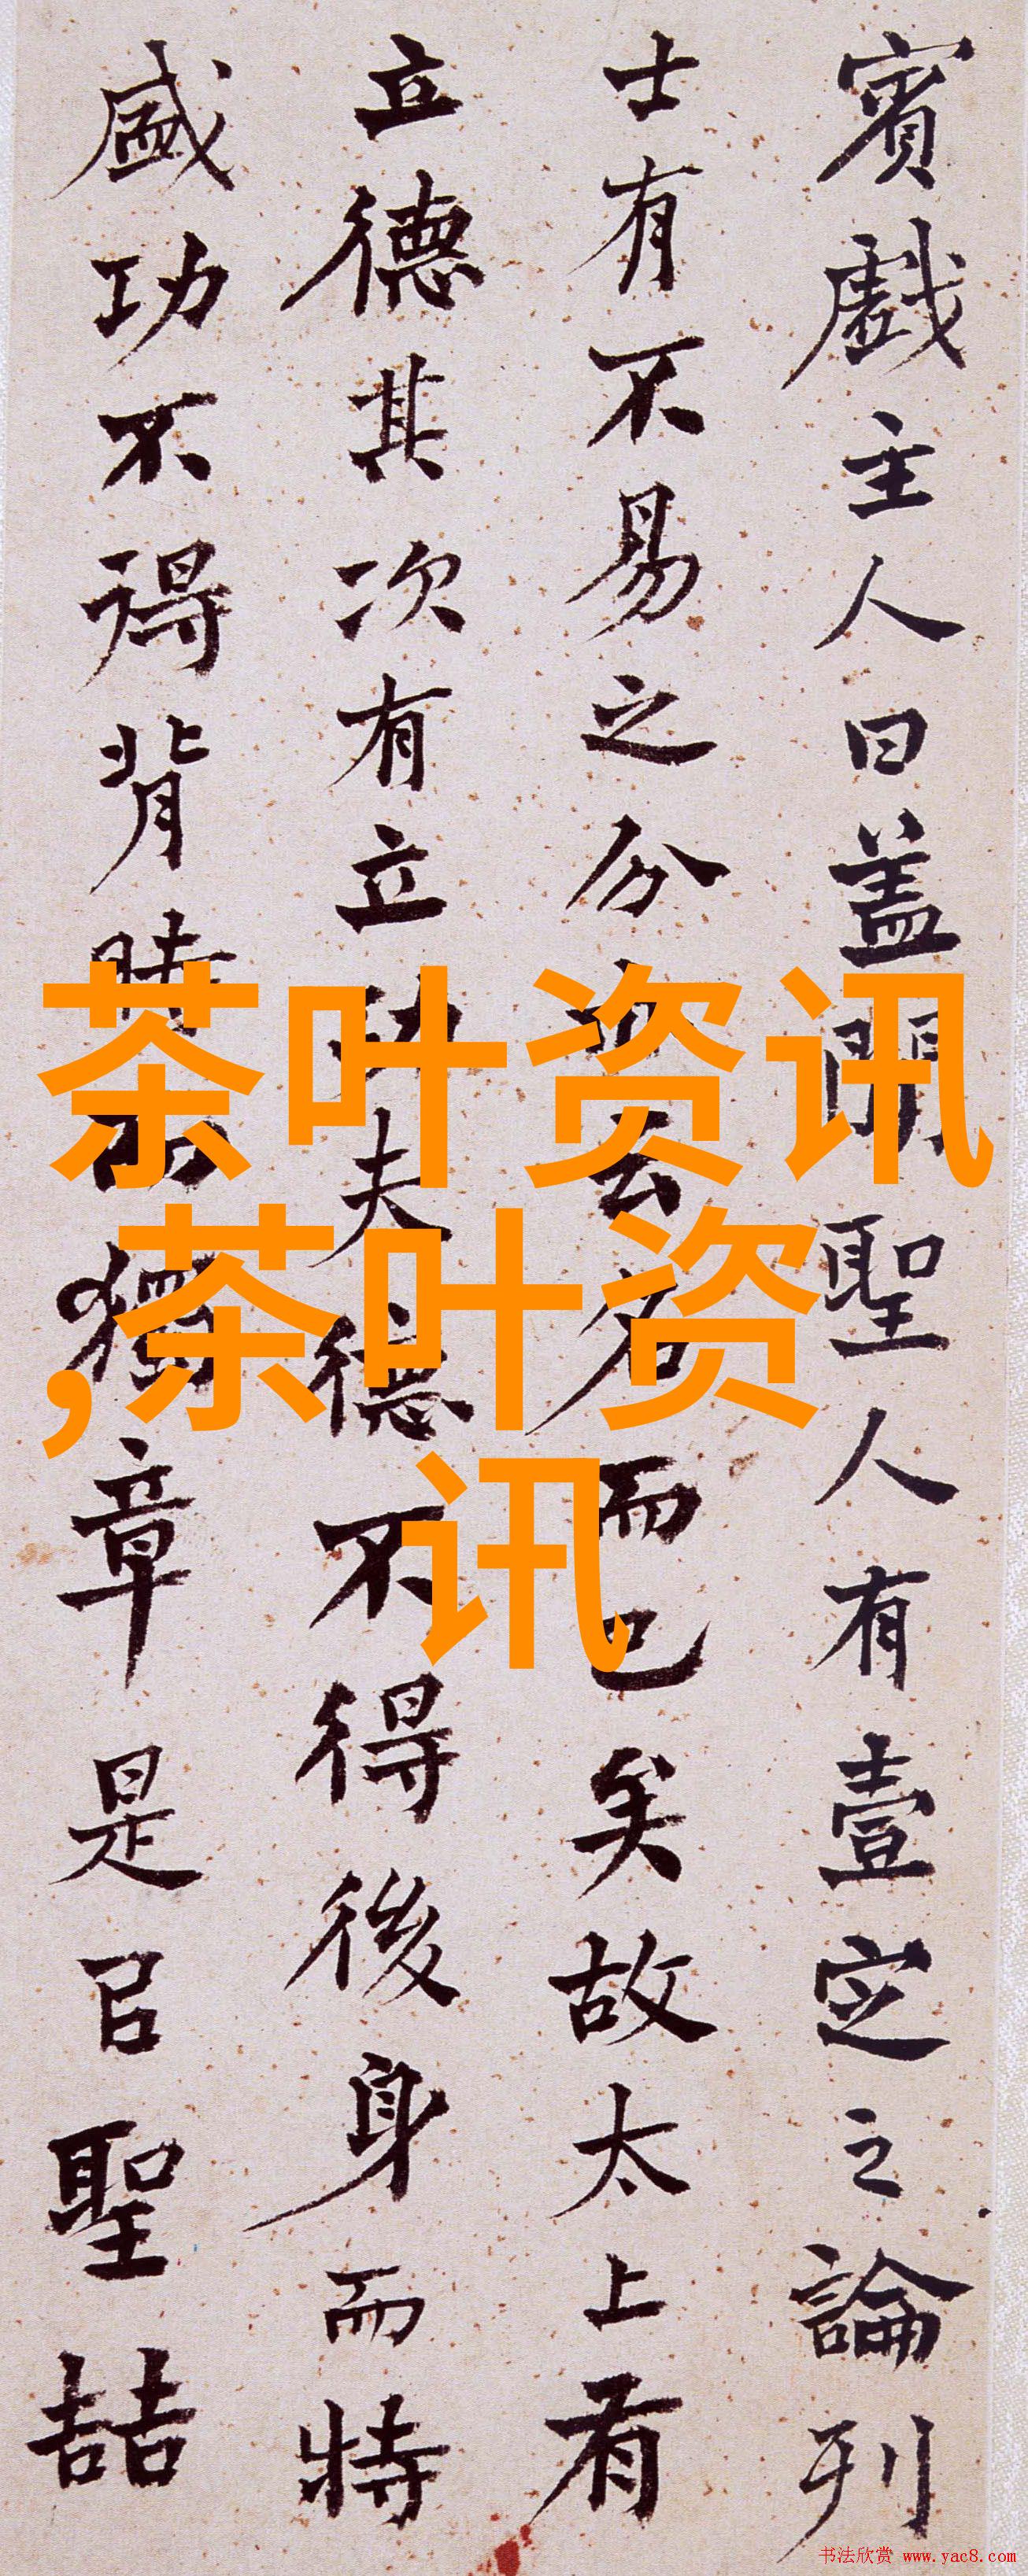 賓戲主人曰盖聞聖人有壹定之論列
士有不易之分亦云名而已矣故太上有
立德其次有立功夫德不得後身而特
盛功不得背時而獨章是㠯聖喆
茶叶资讯
,茶叶资
讯
书法欣赏 www.yac8.com